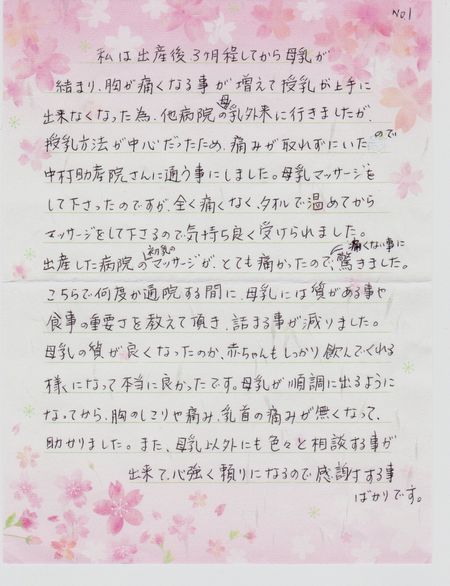 No1
私は出産後、3ヶ月程してから母乳が
結まり、胸が痛くなる事が増えて授乳が上手に
出来なくなった為、他病院の母乳外来に行きましたが、
授乳方法が中心だったため、痛みが取れずにいたので
中村助孝院さんに通う事にしました。母乳マッサージを
して下さったのですが、全く痛くなく、タオルで温めてから
マッサージをして下さるので気持ち良く受けられました。
出産した病院の初乳のマッサージが、とても痛かったので、痛くない事に驚きました。
こちらで何度か通院する間に、母乳には質がある事や
食事の重要さを教えて頂き、詰まる事が減りました。
母乳の質が良くなったのか、赤ちゃんもしっかり飲んでくれる
様になって本当に良かったです。母乳が順調に出るように
なってから、胸のしこりや痛み、乳首の痛みが無くなって、
助かりました。また、母乳以外にも色々と相談する事が
出来て、心強く頼りになるので感謝する事
ばかりです。